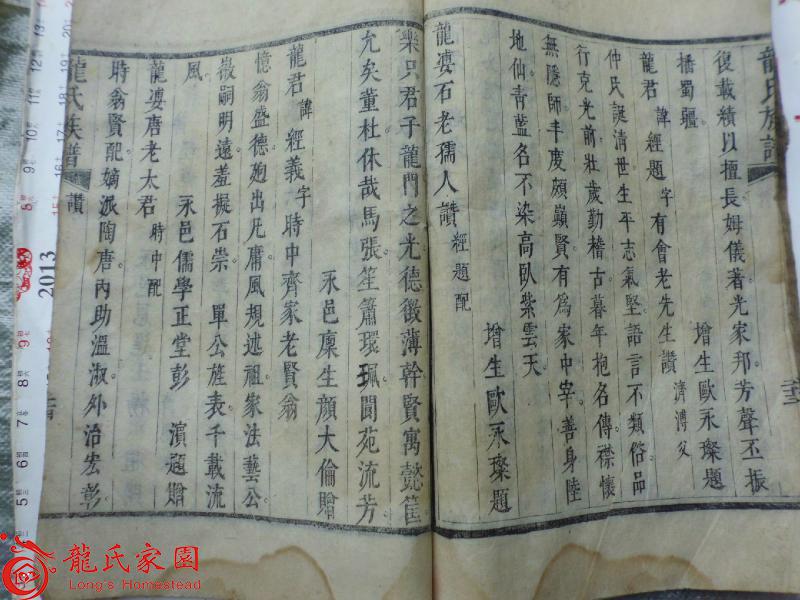 龍氏族譜
復載績以擅長姆儀著光家邦芳聲丕振
播蜀疆
增生歐永璨題
龍君諱經題字有會老先生讚
濟溥父
仲氏誕清世生平志氣堅語言不類俗品
行克光前壯歲勤稽古暮年抱名傳襟懷
無隱師丰度頗顛賢有為家中宰善身陸
地仙青藍名不染高臥紫雲天
增生歐永璨題
龍婆石老孺人讚經題配
樂只君子龍門之光德徵薄幹賢寓懿筐
允矣董杜休哉馬張笙簫環珮閬苑流芳
永邑廩生顏大倫贈
龍君諱經義字時中齊家老賢翁
憶翁盛德夐出凡庸風規述祖家法藝公
徽嗣明遠羞擬石崇單公旌表千載流
風
永邑儒學正堂彭濱題贈
龍婆唐老太君時中配
時翁賢配嫡派陶唐內助溫淑外治宏彰
龍氏族譜
讚
2013
龍氏家園
Long's Homestead